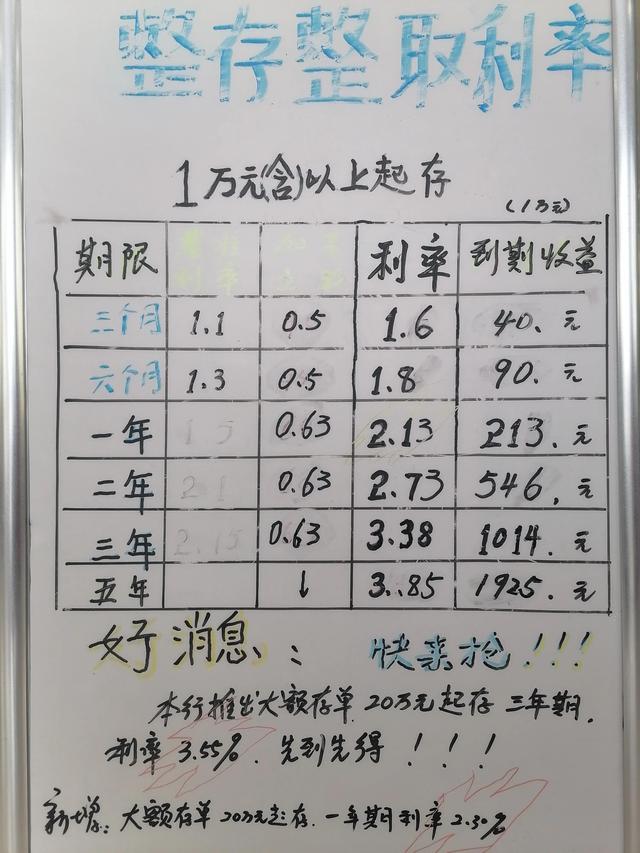 整存整取利率
1万元(含)以上起存
(1万元)
期限 利率 到期收益
三个月 1.1 0.5 1.6 40.元
六个月 1.3 0.5 1.8 90.元
一年 1.5 0.63 2.13 213.元
二年 2.1 0.63 2.73 546.元
三年 2.15 0.63 3.38 1014.元
五年 ↓ 3.85 1925.元
好消息： 快来抢!!!
本行推出大额存单20万元起存 三年期,
利率3.55%.先到先得!!!
新增：大额存单20万元起存.一年期利率2.30%